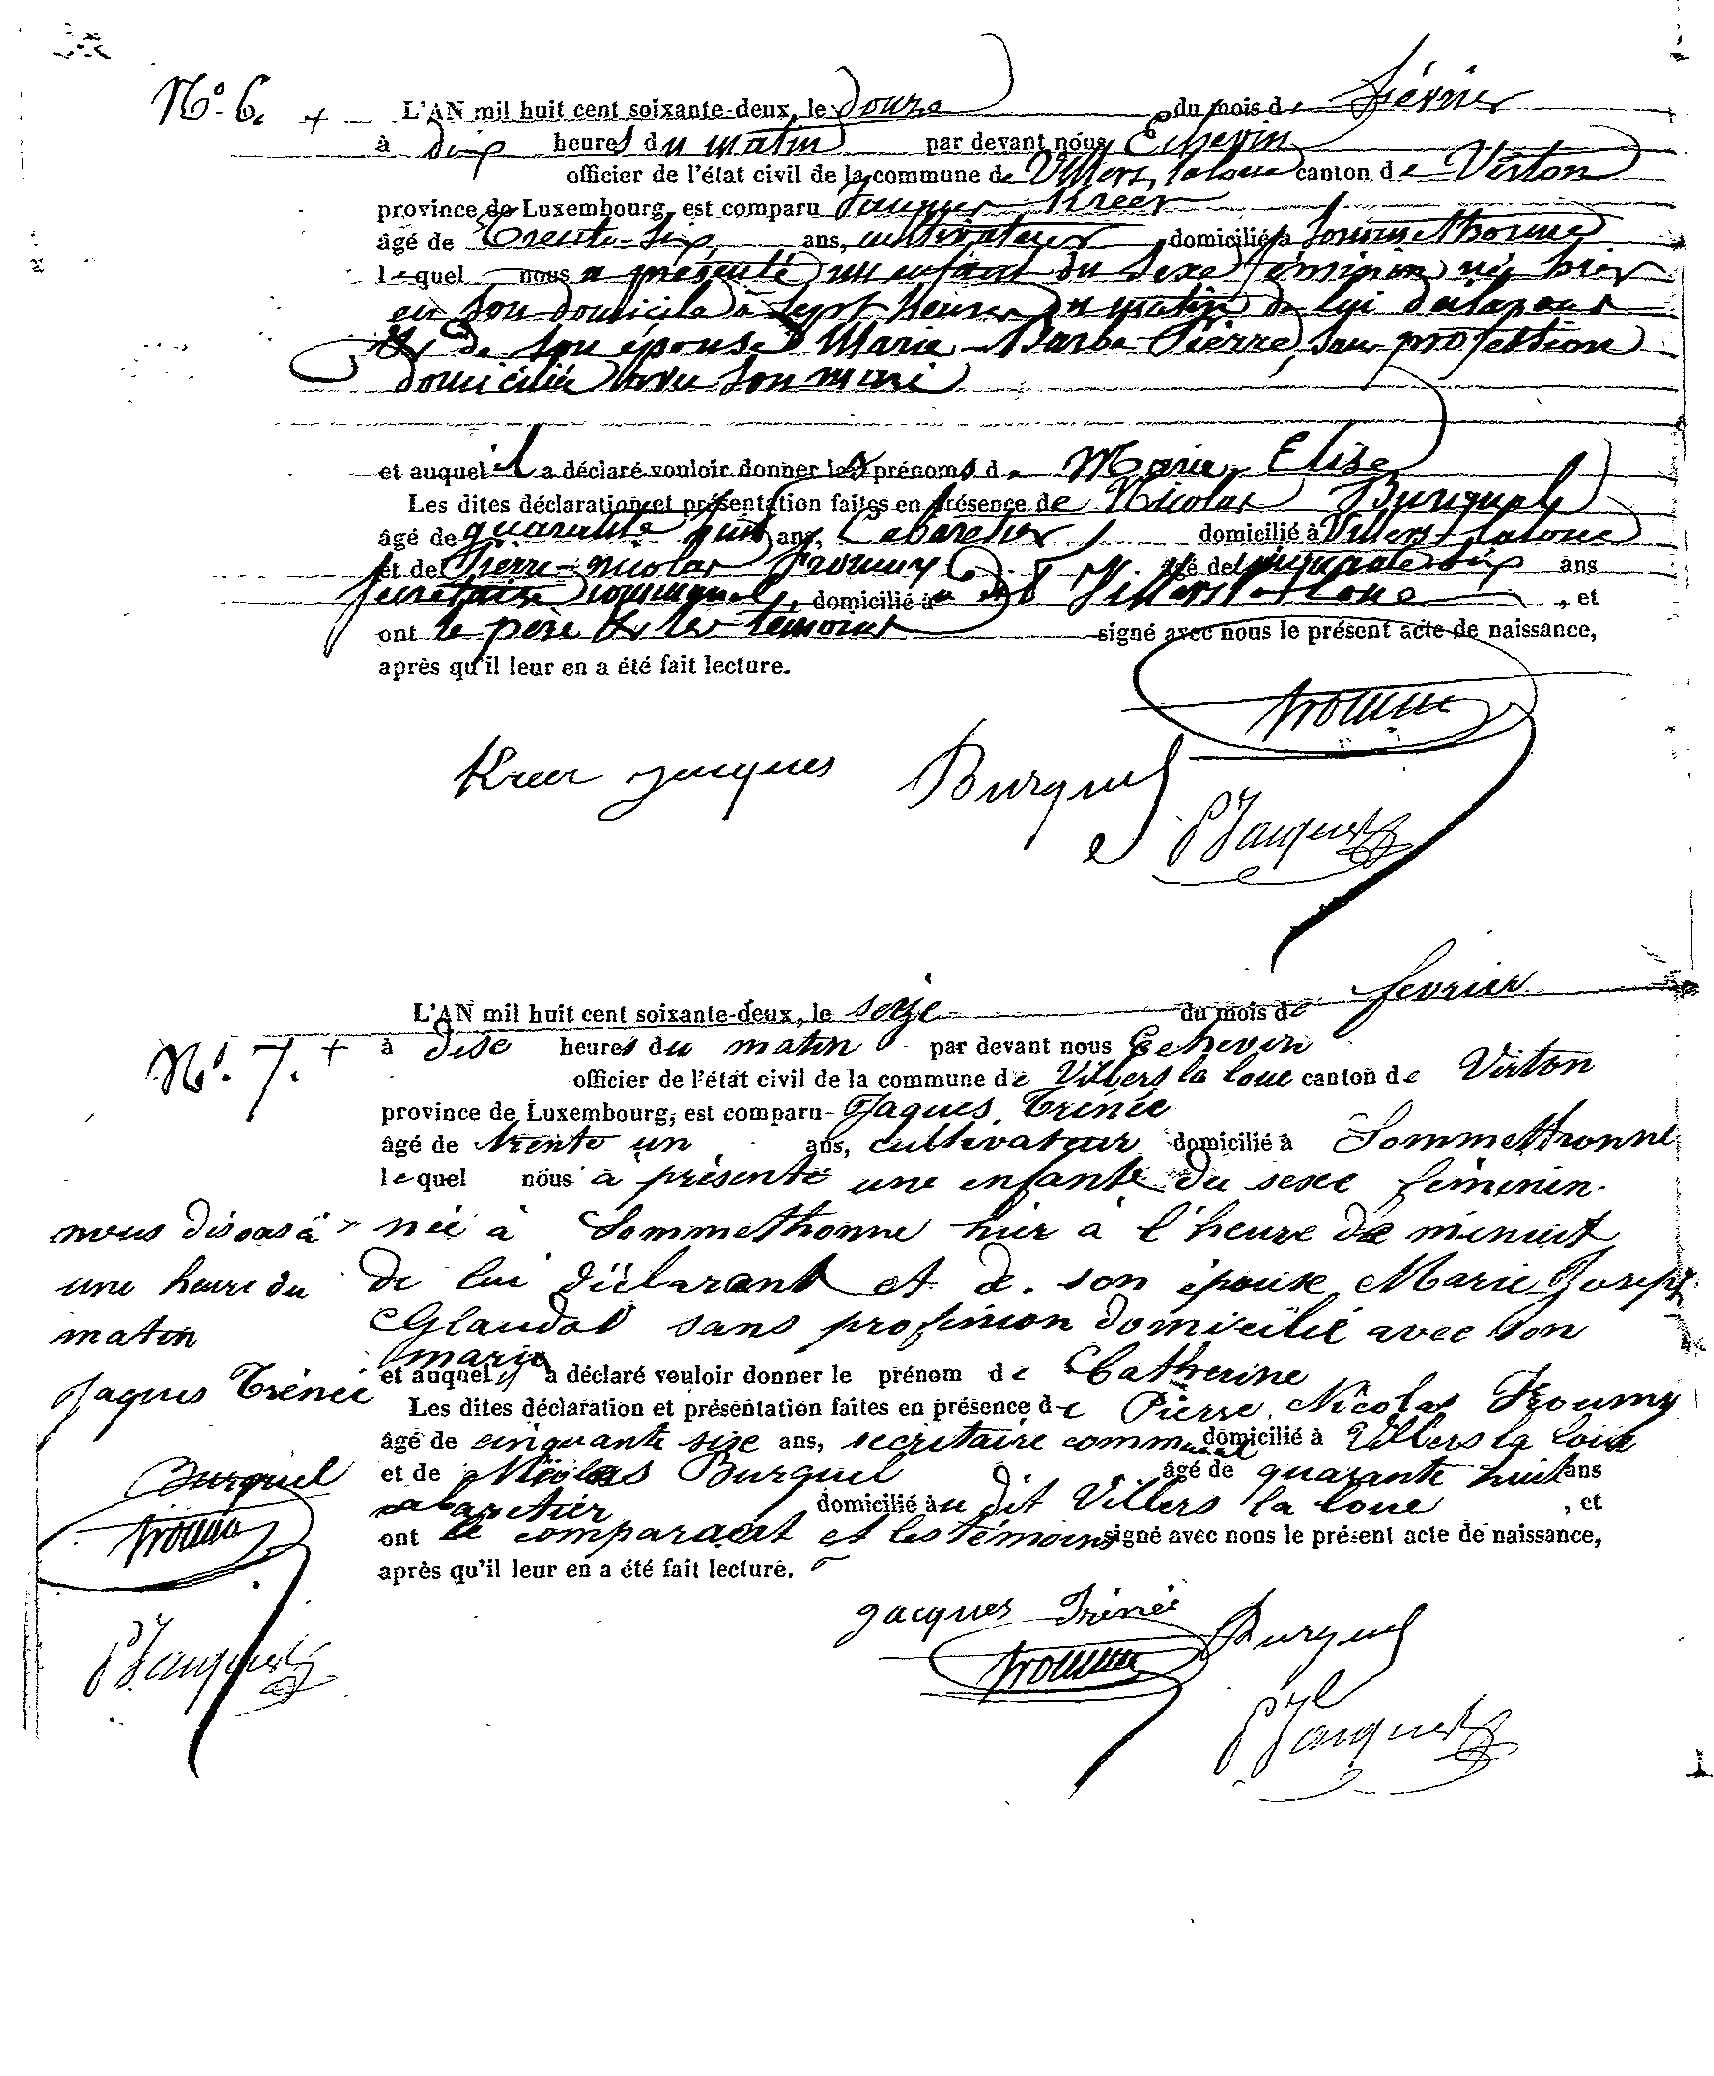 N° 6. + L'AN mil huit cent soixante-deux, le douze du mois de février
à dix heures du matin par devant nous Echevin
officier de l'état civil de la commune de Villers, laloue canton de Virton
province de Luxembourg, est comparu Jacques Kreer
âgé de Trente-Six ans, cultivateur domicilié à Sommethonne
lequel nous a présenté un enfant du sexe féminin né hier
en son domicile à sept heures du matin de lui déclarant
& de son épouse Marie-Barbe Pierre, sans profession
domiciliée avec son mari
et auquel il a déclaré vouloir donner les prénoms de Marie, Elise
Les dites déclaration et présentation faites en présence de Nicolas Burquel
âgé de quarante huit ans, Cabaretier domicilié à Villers laloue
et de Pierre-nicolas Froumy âgé de cinquante six ans
secrétaire communal, domicilié au dit Villers laloue , et
ont le père & les témoins signé avec nous le présent acte de naissance,
après qu'il leur en a été fait lecture.
Froumy
Kreer jacques Burquel
PJJacques
L'AN mil huit cent soixante-deux, le seize du mois de fevrier
N°. 7. + à dise heures du matin par devant nous Echevin
officier de l'état civil de la commune de Villers la loue canton de Virton
province de Luxembourg, est comparu Jaques Trénée
âgé de trente un ans, cultivateur domicilié à Sommethonne
lequel nous a présenté une enfante du sexe féminin.
nous disons à née à Sommethonne hier à l'heure de minuit
une heure du de lui déclarant et de son épouse Marie Joseph
matin Glaudot sans profession domicilié avec son
mari
et auquel il a déclaré vouloir donner le prénom de Catherine
Jaques Trénée Les dites déclaration et présentation faites en présence de Pierre Nicolas Froumy
âgé de cinquante sixe ans, secretaire communal domicilié à Villers la loue
Burquel et de Nicolas Burquel âgé de quarante huit ans
Froumy cabaretier domicilié au dit Villers la loue , et
ont le comparant et les témoins signé avec nous le présent acte de naissance,
après qu'il leur en a été fait lecture.
jacques Trénée Burquel
Froumy